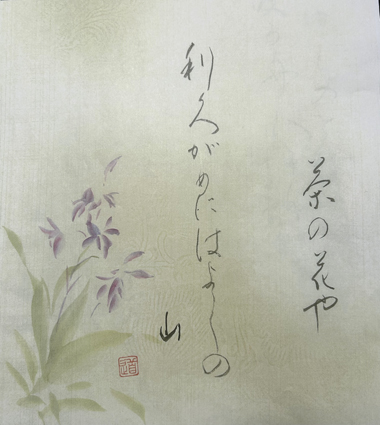 茶の花や
利久がめにはよしの
山